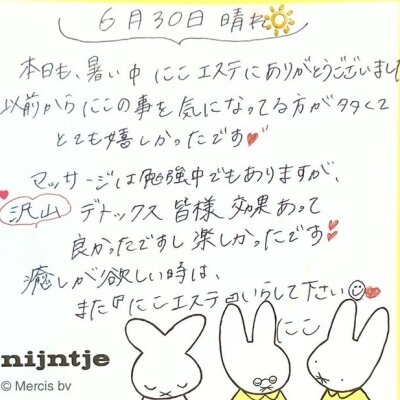 6月30日 晴れ
本日も、暑い中 にこエステにありがとうございまし
以前からにこの事を気になってる方が多くて
とても嬉しかったです
マッサージは勉強中でもありますが、
沢山 デトックス 皆様 効果あって
良かったですし楽しかったです
癒しが欲しい時は、
また にこエステ いらして下さい
にこ
nijntje
© Mercis bv